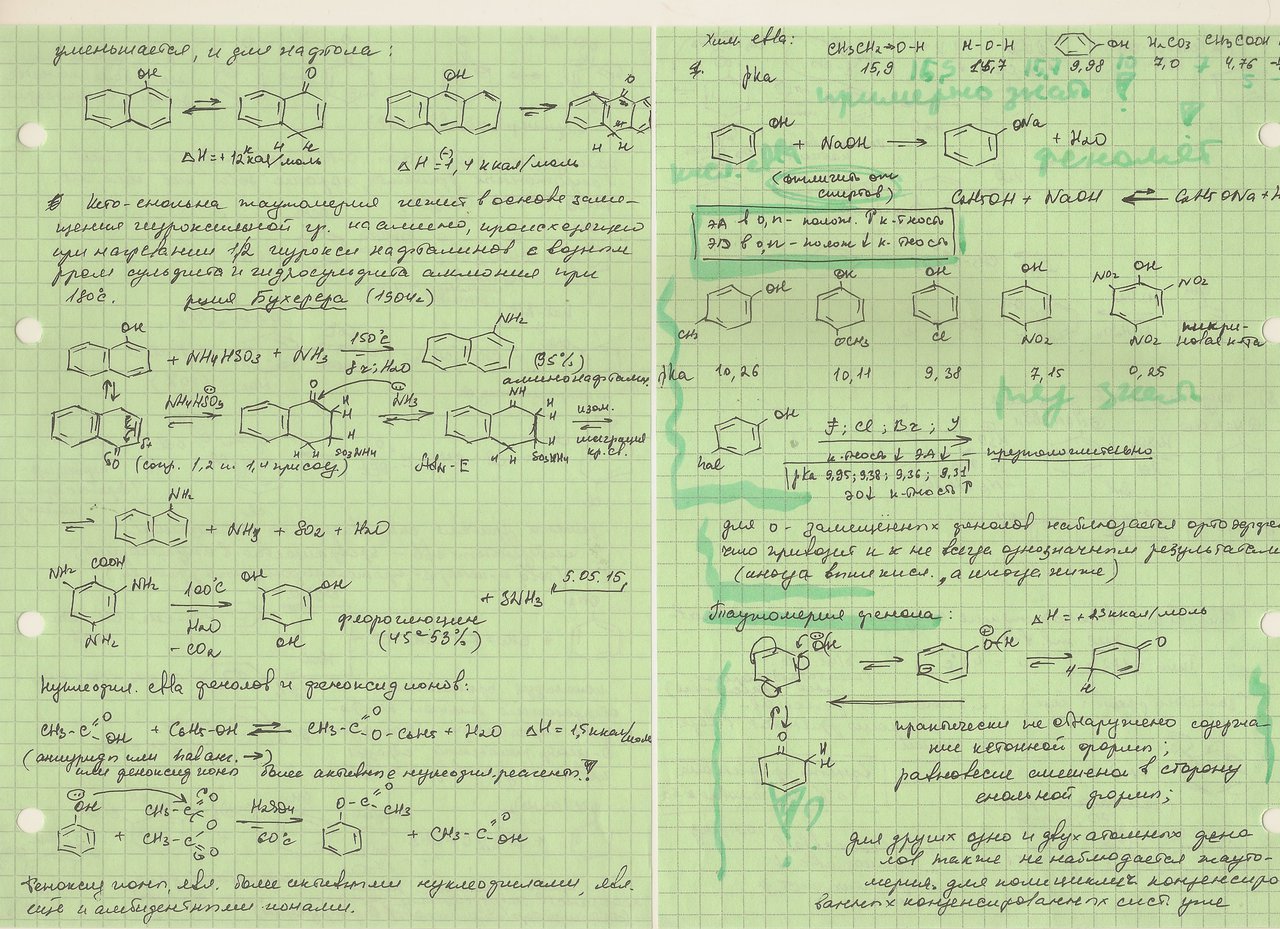 уменьшается, и для нафтола:
OH O OH O
H H H H
ΔH = +12 ккал/моль ΔH = (-)1,4 ккал/моль
Кето-енольна таутомерия лежит в основе заме-
щения гидроксильной гр. на амино, происходящего
при нагревании 1,2 гидрокси нафталинов с водным
р-ром сульфита и гидросульфита аммония при
180°C. р-ция Бухерера (1904г)
OH + NH4HSO3 + NH3 150°C 8ч; H2O NH2 (95%)
аминонафталин
NH4HSO3 O H H H H SO3NH4 NH3 NH H H H H SO3NH4 изом. миграция кр. св.
δO δ+ (сопр. 1,2 и 1,4 присоед) AdN-E
NH2 + NH3 + SO2 + H2O
NH2 COOH NH2 NH2 100°C H2O - CO2 OH OH OH + 3NH3 5.05.15
флороглюцин
(45-53%)
Нуклеофил. св-ва фенолов и феноксид ионов:
CH3-C O OH + C6H5-OH ⇌ CH3-C O O-C6H5 + H2O ΔH = 1,5 ккал/моль
(ангидрид или галанг. →)
или феноксид ионы более активные нуклеофил. реагенты!
OH + CH3-C O O CH3-C O H2SO4 60°C O-C O CH3 + CH3-C O OH
Феноксид ионы явл. более активными нуклеофилами, явл.
ещё и амбидентными ионами.
Хим. св-ва:
CH3CH2→O-H H-O-H OH H2CO3 CH3COOH
pKa 15,9 15,7 9,98 7,0 4,76
примерно знать!
OH + NaOH ⇌ ONa + H2O
фенолят
(отличить от
спиртов) C2H5OH + NaOH ⇌ C2H5ONa + H
ЭА в о,п- полож. ↑ к-тность
ЭД в о,п- полож ↓ к-тность
OH CH3 OH OCH3 OH Cl OH NO2 NO2 OH NO2 NO2 пикри-
новая к-та
pKa 10,26 10,11 9,38 7,15 0,25
ряд знать
OH hal F; Cl; Br; I
к-тность ↓ ЭА ↓ - предположительно
pKa 9,95; 9,38; 9,36; 9,31
ЭО↓ к-тность ↑
для о- замещённых фенолов наблюдается ортоэффе
что приводит и к не всегда однозначным результатам
(иногда выше кисл., а иногда ниже)
Таутомерия фенола: ΔH = +23 ккал/моль
OH OH O
H H
O H H
практически не обнаружено содержа-
ние кетонной формы;
равновесие смешена в сторону
енольной формы;
для других одно и двух атомных фено
лов также не наблюдается тауто-
мерия. для полициклич конденсиро
ванных конденсированных сист. уже